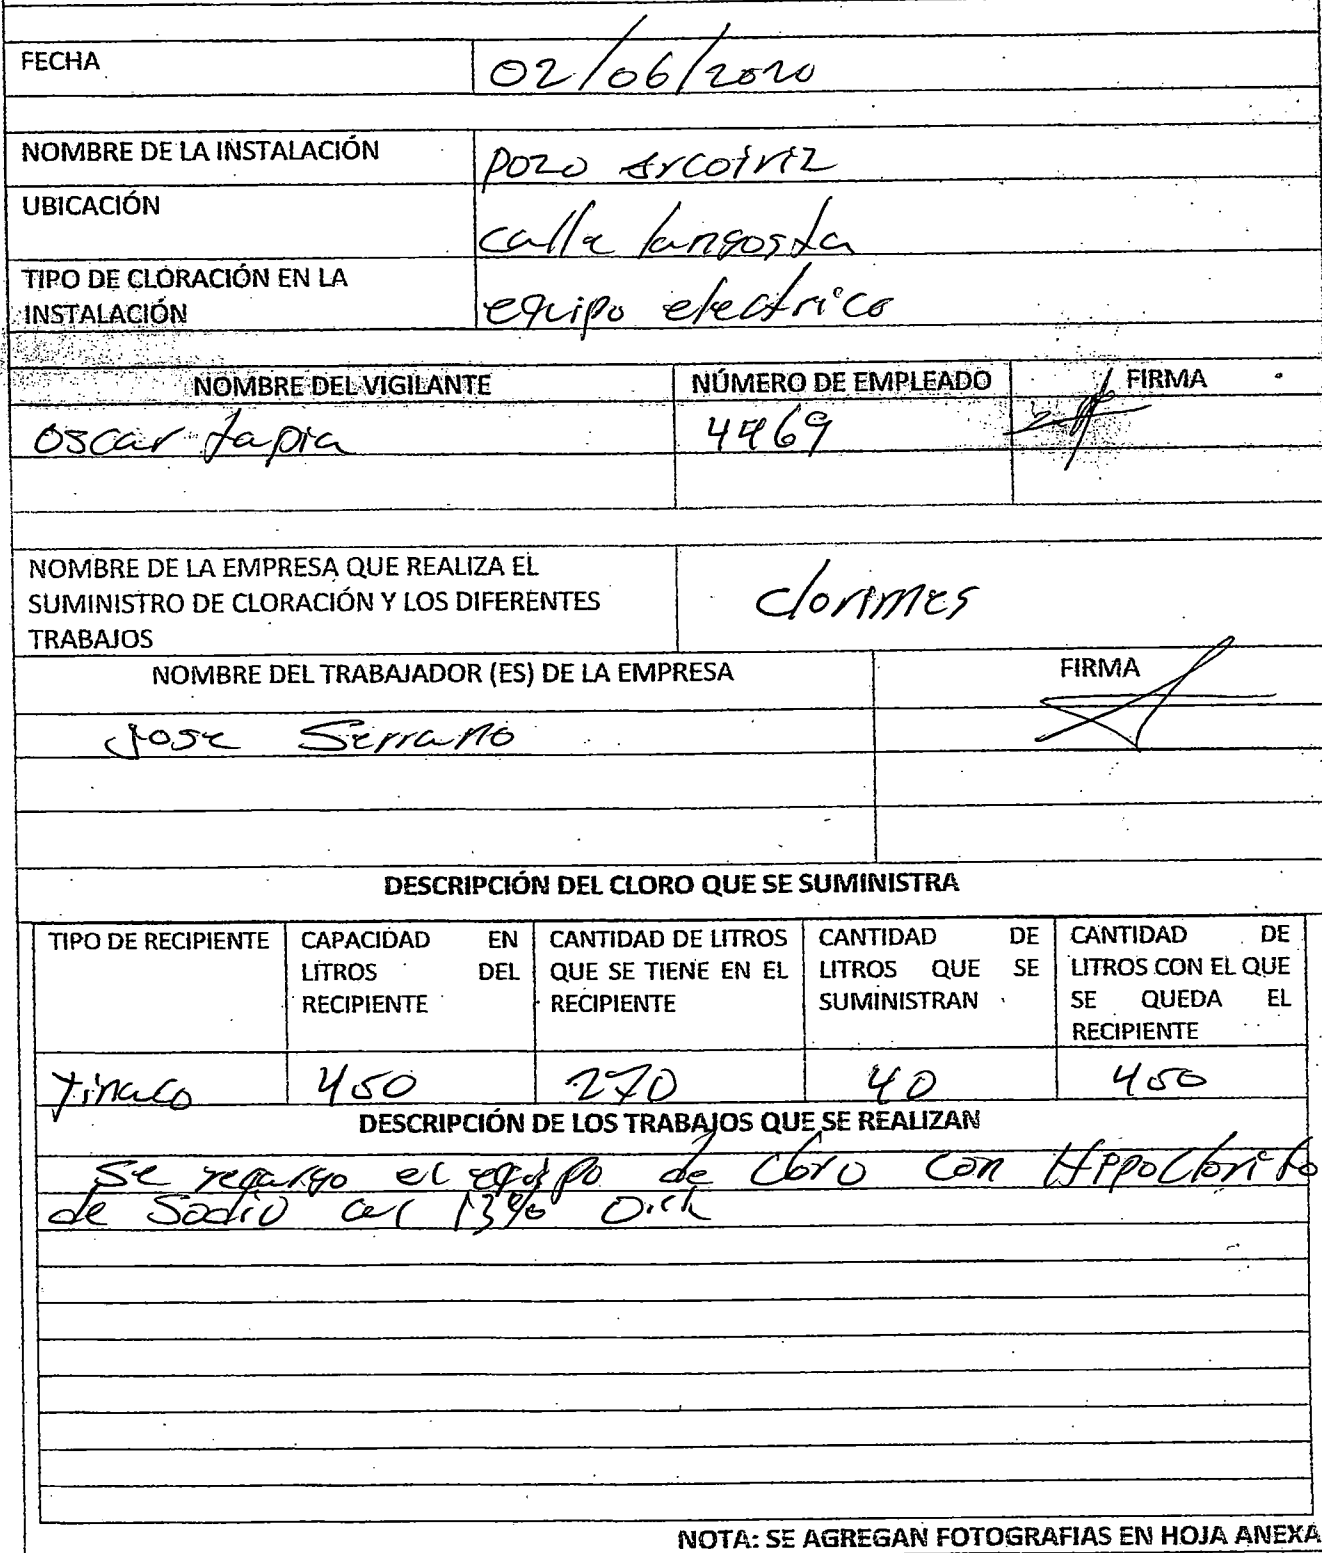 FECHA 02/06/2020
NOMBRE DE LA INSTALACIÓN pozo arcoiriz
UBICACIÓN calle langosta
TIPO DE CLORACIÓN EN LA
INSTALACIÓN equipo electrico
NOMBRE DEL VIGILANTE NÚMERO DE EMPLEADO FIRMA
oscar tapia 4469
NOMBRE DE LA EMPRESA QUE REALIZA EL
SUMINISTRO DE CLORACIÓN Y LOS DIFERENTES
TRABAJOS clorimes
NOMBRE DEL TRABAJADOR (ES) DE LA EMPRESA FIRMA
Jose Serrano
DESCRIPCIÓN DEL CLORO QUE SE SUMINISTRA
TIPO DE RECIPIENTE CAPACIDAD EN CANTIDAD DE LITROS CANTIDAD DE CANTIDAD DE
LITROS DEL QUE SE TIENE EN EL LITROS QUE SE LITROS CON EL QUE
RECIPIENTE RECIPIENTE SUMINISTRAN SE QUEDA EL
RECIPIENTE
tinaco 450 270 40 450
DESCRIPCIÓN DE LOS TRABAJOS QUE SE REALIZAN
Se regargo el equipo de Cloro con HippoClorito
de Sodio al 13%
NOTA: SE AGREGAN FOTOGRAFIAS EN HOJA ANEXA